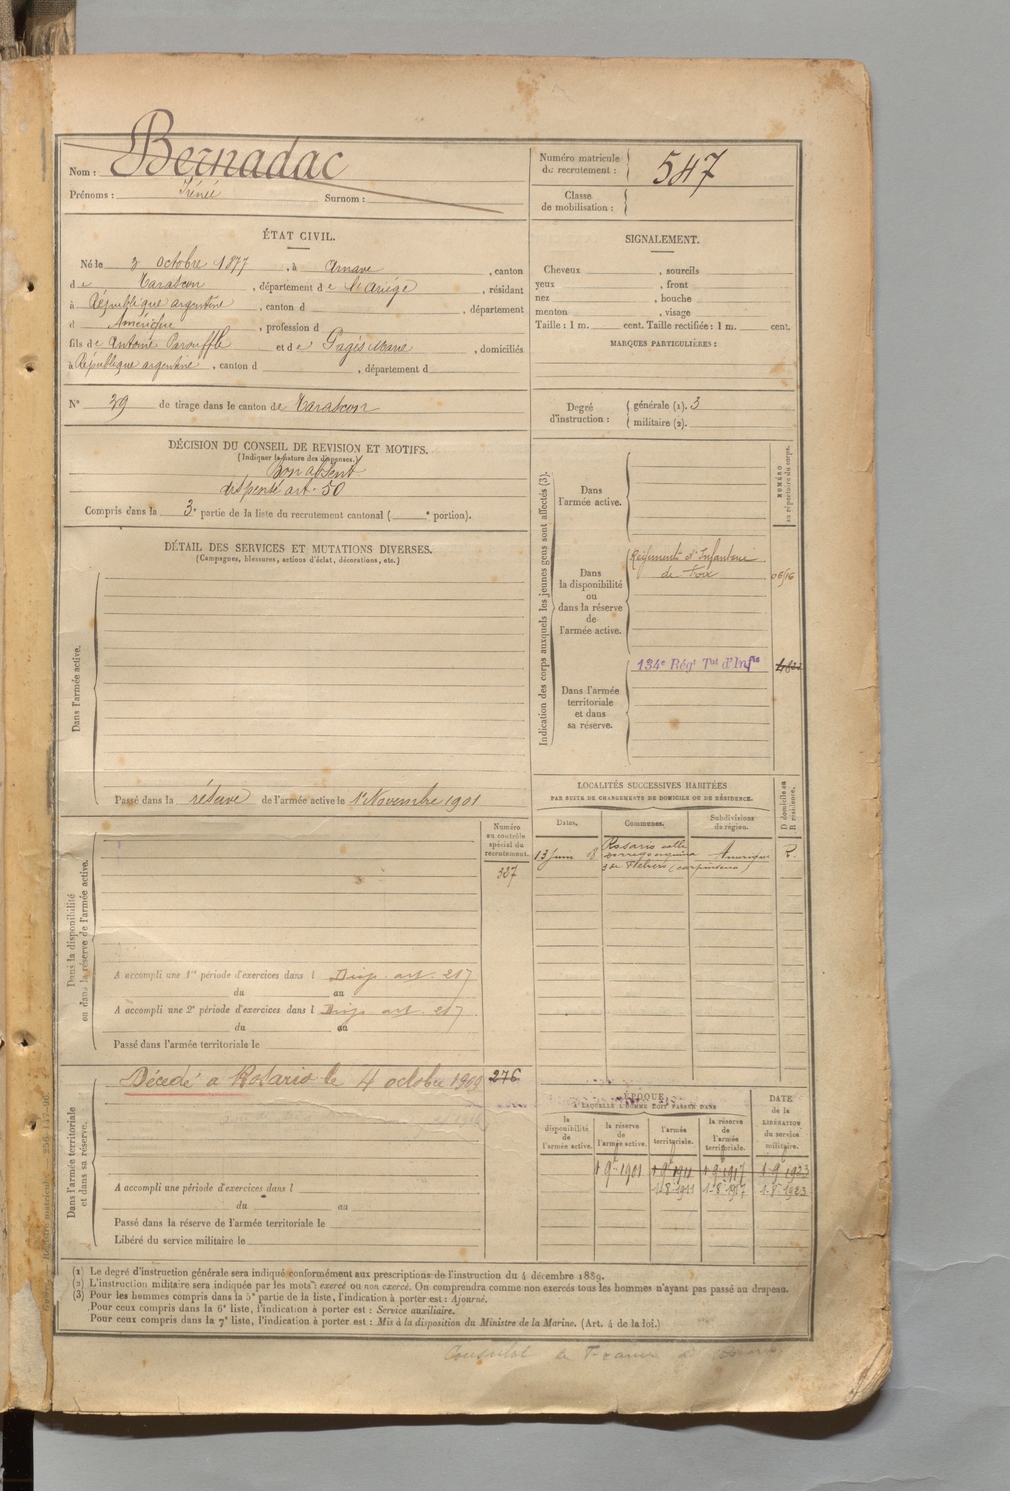 Nom : Bernadac
Prénoms : Irénée Surnom :
Numéro matricule du recrutement : 547
Classe de mobilisation :
ÉTAT CIVIL.
Né le 3 octobre 1877, à Arnave, canton
de Tarascon, département de l'Ariège, résidant
à République argentine, canton d , département
d Amérique, profession d
fils de Antoine Parouffle et de Pagès Marie, domiciliés
à République argentine, canton d , département d
N° 39 de tirage dans le canton de Tarascon
SIGNALEMENT.
Cheveux , sourcils
yeux , front
nez , bouche
menton , visage
Taille : 1 m. cent. Taille rectifiée : 1 m. cent.
MARQUES PARTICULIÈRES :
Degré d'instruction : générale (1). 3
militaire (2).
DÉCISION DU CONSEIL DE REVISION ET MOTIFS.
(Indiquer la nature des dispenses.)
Bon absent
dispensé art. 50
Compris dans la 3e partie de la liste du recrutement cantonal ( e portion).
DÉTAIL DES SERVICES ET MUTATIONS DIVERSES.
(Campagnes, blessures, actions d'éclat, décorations, etc.)
Dans l'armée active.
Passé dans la réserve de l'armée active le 1er Novembre 1901
Indication des corps auxquels les jeunes gens sont affectés (3).
NUMÉRO au répertoire du corps.
Dans l'armée active.
Dans la disponibilité ou dans la réserve de l'armée active.
Régiment d'Infanterie
de Foix
Dans l'armée territoriale et dans sa réserve.
134e Régt Tal d'Infie
LOCALITÉS SUCCESSIVES HABITÉES
PAR SUITE DE CHANGEMENTS DE DOMICILE OU DE RÉSIDENCE.
D domicile ou R résidence.
Dates. Communes. Subdivisions de région.
13 juin Rosario calle Amérique R.
(carpinteria)
Dans la disponibilité ou dans la réserve de l'armée active.
Numéro au contrôle spécial du recrutement.
327
A accompli une 1re période d'exercices dans l Disp. art. 217
du au
A accompli une 2e période d'exercices dans l Disp. art. 217
du au
Passé dans l'armée territoriale le
Dans l'armée territoriale et dans sa réserve.
Décédé à Rosario le 4 octobre 1909 276
A accompli une période d'exercices dans l
du au
Passé dans la réserve de l'armée territoriale le
Libéré du service militaire le
ÉPOQUE
A LAQUELLE L'HOMME DOIT PASSER DANS
DATE de la LIBÉRATION du service militaire.
la disponibilité de l'armée active. la réserve de l'armée active. l'armée territoriale. la réserve de l'armée territoriale.
1 9 1901 1 9 1911 1 9 1917 1 9 1923
1.8.1911 1.8.1917 1.8.1923
(1) Le degré d'instruction générale sera indiqué conformément aux prescriptions de l'instruction du 4 décembre 1889.
(2) L'instruction militaire sera indiquée par les mots : exercé ou non exercé. On comprendra comme non exercés tous les hommes n'ayant pas passé au drapeau.
(3) Pour les hommes compris dans la 5e partie de la liste, l'indication à porter est : Ajourné.
Pour ceux compris dans la 6e liste, l'indication à porter est : Service auxiliaire.
Pour ceux compris dans la 7e liste, l'indication à porter est : Mis à la disposition du Ministre de la Marine. (Art. 4 de la loi.)
Consulat de France à